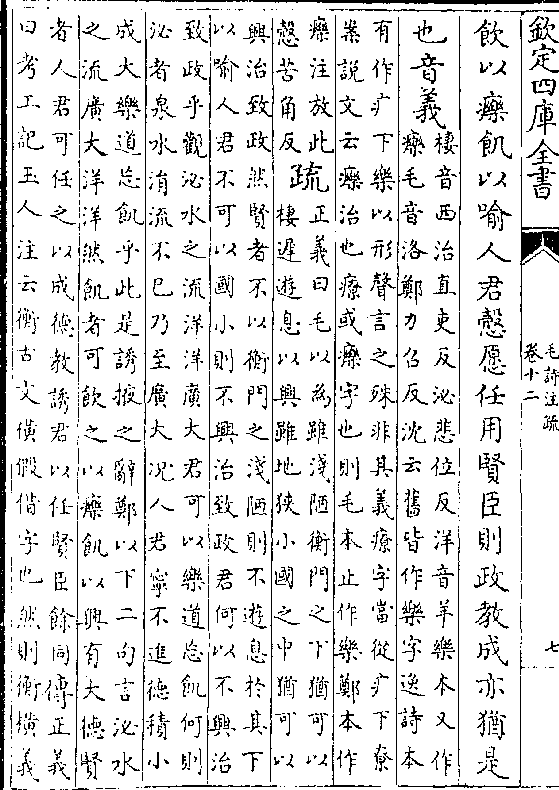 欽定四庫全書
毛詩注疏
卷十二
七
飲以療飢以喻人君慤愿任用賢臣則政教成亦猶是
也音義
棲音西治直吏反泌悲位反洋音羊樂本又作
𤻲毛音洛鄭力召反沈云舊皆作樂字逸詩本
有作疒下樂以形聲言之殊非其義療字當從疒下尞
案說文云𤻲治也療或𤻲字也則毛本止作樂鄭本作
𤻲注放此
慤苦角反
疏
正義曰毛以為雖淺陋衡門之下猶可以
棲遲遊息以興雖地狹小國之中猶可以
興治致政然賢者不以衡門之淺陋則不遊息於其下
以喻人君不可以國小則不興治致政君何以不興治
致政乎觀泌水之流洋洋廣大君可以樂道忘飢何則
泌者泉水涓流不已乃至廣大况人君寧不進德積小
成大樂道忘飢乎此是誘掖之辭鄭以下二句言泌水
之流廣大洋洋然飢者可飲之以𤻲飢以興有大德賢
者人君可任之以成德教誘君以任賢臣餘同傳正義
曰考工記玉人注云衡古文橫假借字也然則衡橫義